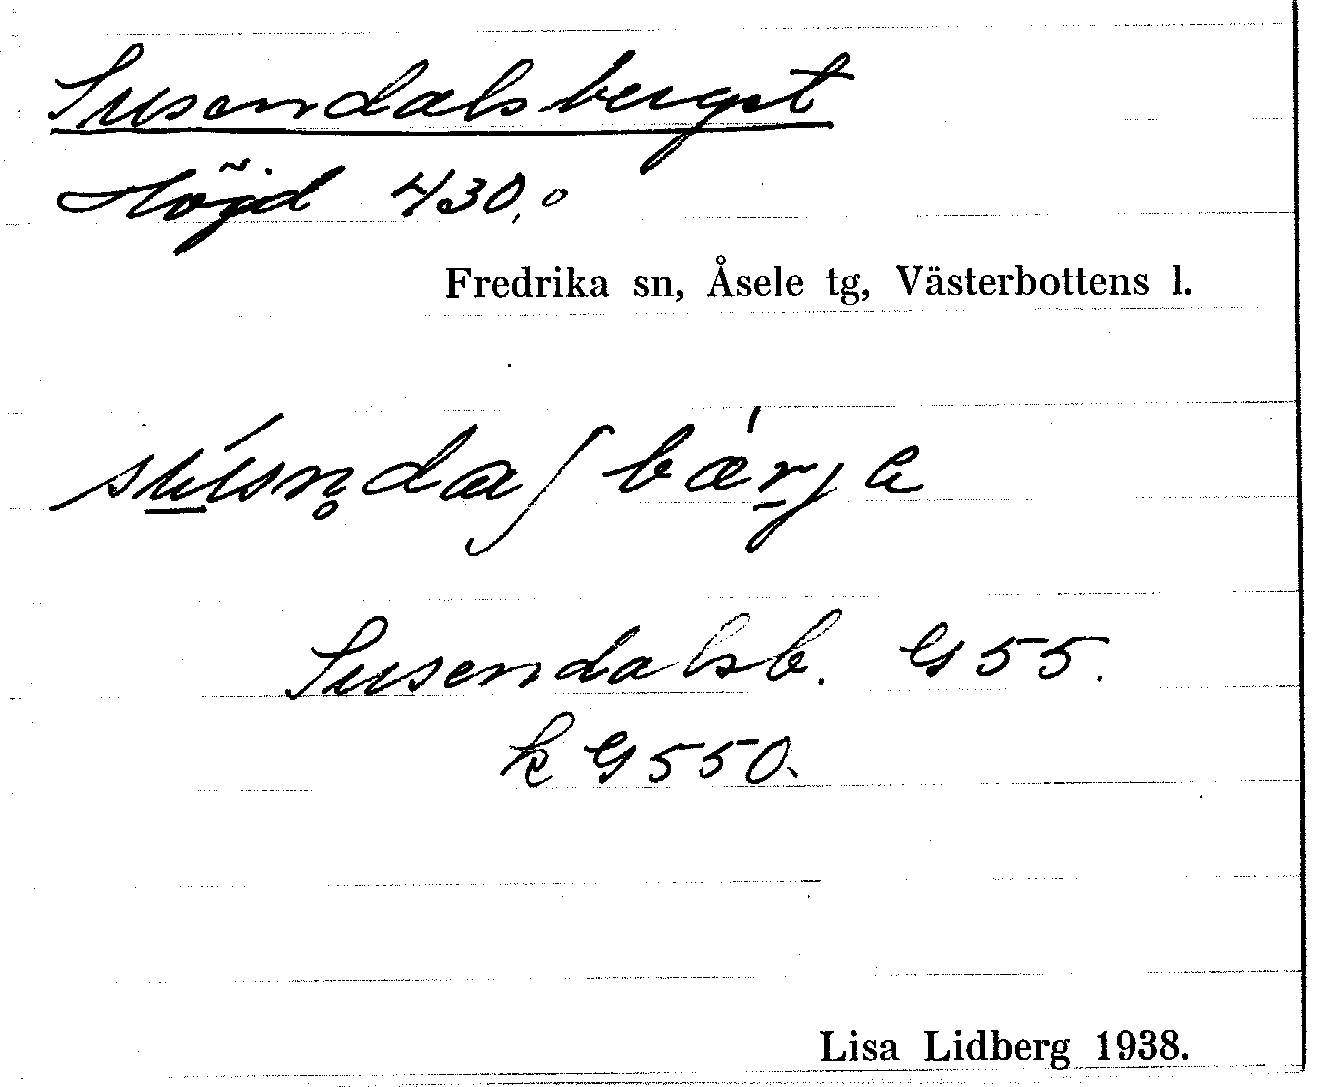 Susendalsberget
Höjd 430,0
Fredrika sn, Åsele tg, Västerbottens l.
súsn̥daʃbæ̀rje
Susendalsb. G 55.
k G 550.
Lisa Lidberg 1938.